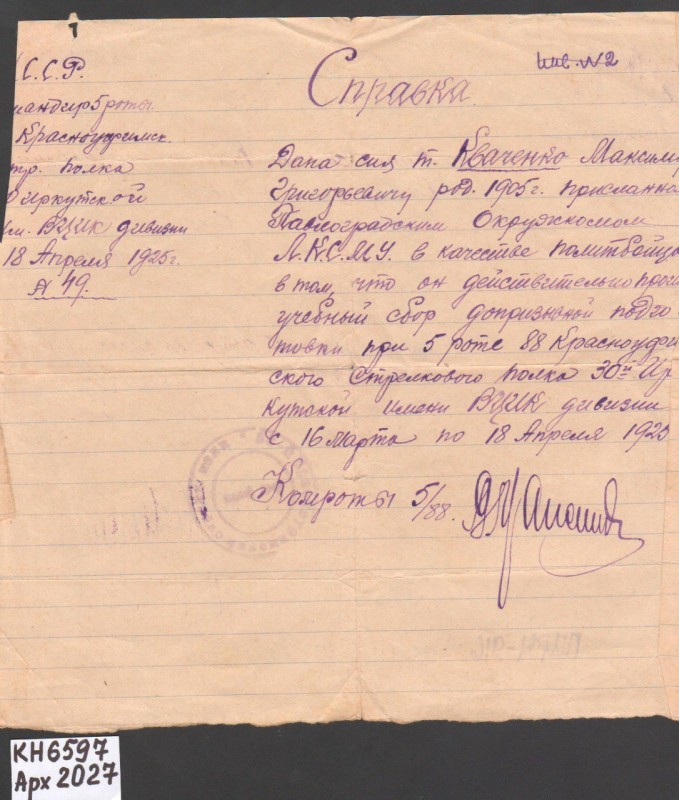 С.С.Р.
мандир 5 роты
Красноуфимск.
стр. полка
Иркутской
им. ВЦИК дивизии
18 Апреля 1925г.
№ 49.
инв. №2
Справка
Дана сия т. Кваченко Максиму
Григорьевичу род. 1905г. присланно
Павлоградским Окружкомом
Л.К.С.М.У. в качестве политбойца
в том, что он действительно про
учебный сбор допризывной подго
товки при 5 роте 88 Красноуфи
ского Стрелкового полка 30й Ир
кутской имени ВЦИК дивизии
с 16 Марта по 18 Апреля 1925
Комроты 5/88.
КН6597
Арх 2027